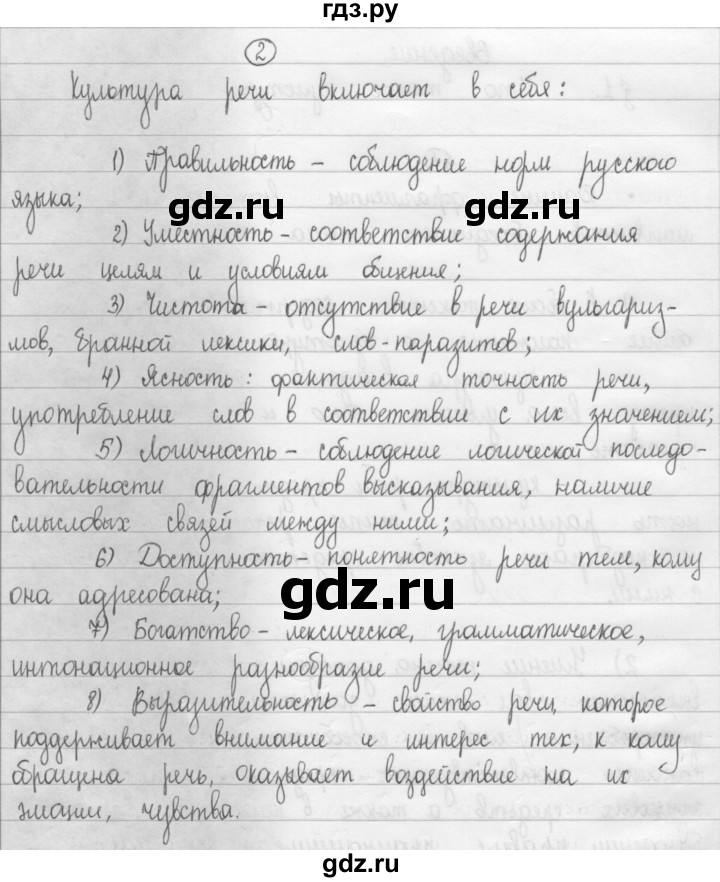 гдз.ру
2
Культура речи включает в себя:
1) Правильность – соблюдение норм русского
языка;
gdz.ru gdz.ru
2) Уместность – соответствие содержания
речи целям и условиям общения;
3) Чистота – отсутствие в речи вульгариз-
мов, бранной лексики, слов-паразитов;
4) Ясность: фактическая точность речи,
употребление слов в соответствие с их значением;
5) Логичность – соблюдение логической последо-
вательности фрагментов высказывания, наличие
смысловых связей между ними;
6) Доступность – понятность речи тем, кому
она адресована;
gdz.ru
7) Богатство – лексическое, грамматическое,
интонационное разнообразие речи;
8) Выразительность – свойство речи, которое
поддерживает внимание и интерес тех, к кому
обращена речь, оказывает воздействие на их
эмоции, чувства.
gdz.ru